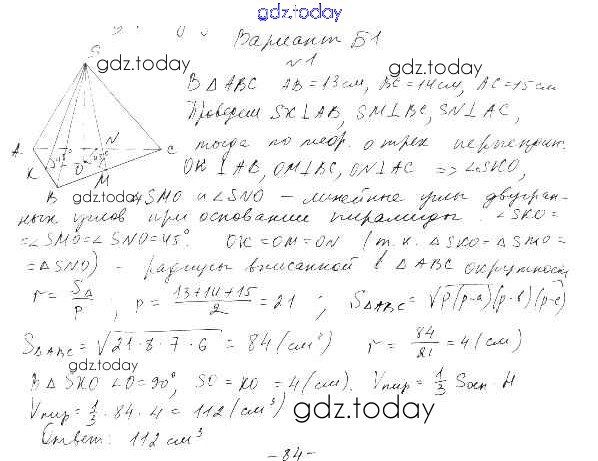 gdz.today
Вариант Б1
№1
gdz.today
S
gdz.today
В Δ ABC AB = 13 см, BC = 14 см, AC = 15 см
Проведем SK⊥AB, SM⊥BC, SN⊥AC,
тогда по теор. о трех перпендик.
OK ⊥ AB, OM⊥BC, ON⊥AC => ∠SKO,
A N C
45° O 45°
K M
B gdz.today
∠SMO и ∠SNO - линейные углы двугран-
ных углов при основании пирамиды. ∠SKO =
= ∠SMO = ∠SNO = 45°. OK = OM = ON (т.к. ΔSKO = ΔSMO =
= ΔSNO) - радиусы вписанной в ΔABC окружност
r = SΔ/p ; p = (13+14+15)/2 = 21 ; SΔABC = √p(p-a)(p-b)(p-c)
SΔABC = √21·8·7·6 = 84 (см²) r = 84/21 = 4 (см)
gdz.today
В Δ SKO ∠O = 90°, SO = KO = 4 (см). Vпир = 1/3 Sосн · H
Vпир = 1/3 · 84 · 4 = 112 (см³)
gdz.today
Ответ: 112 см³
- 84 -